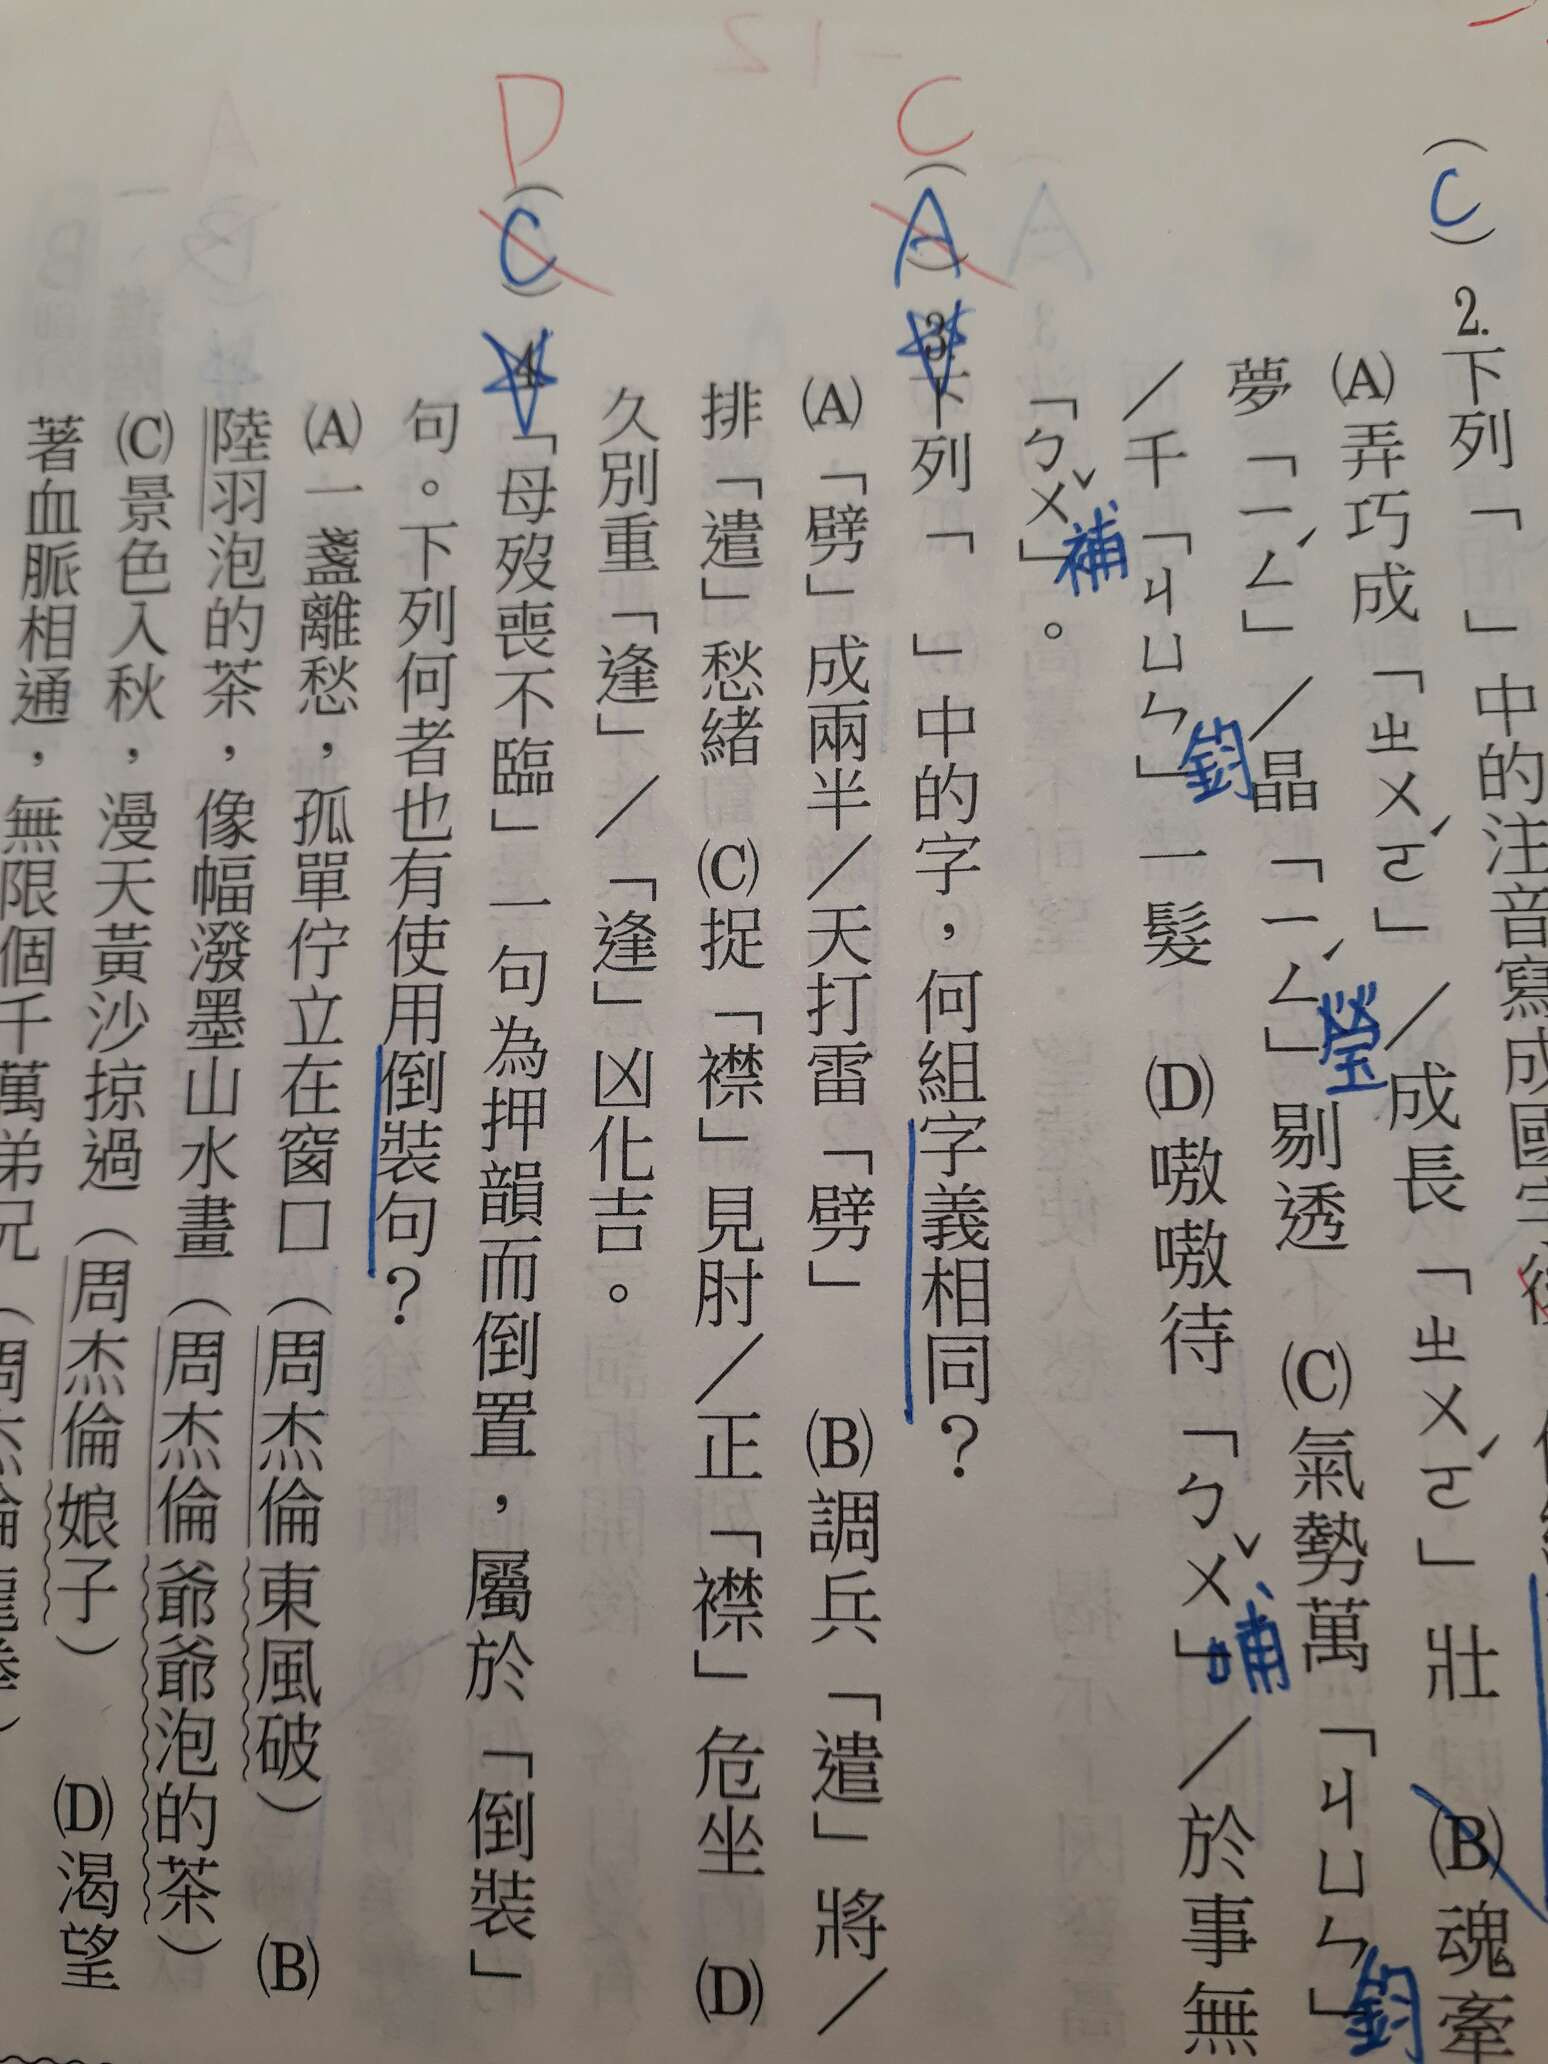 (C) 2. 下列「　」中的注音寫成國字後
(A)弄巧成「ㄓㄨㄛˊ」／成長「ㄓㄨㄛˊ」壯　(B)魂牽
夢「ㄧㄥˊ」／晶「ㄧㄥˊ」瑩剔透　(C)氣勢萬「ㄐㄩㄣ」鈞
／千「ㄐㄩㄣ」鈞一髮　(D)嗷嗷待「ㄅㄨˇ」哺／於事無
「ㄅㄨˇ」補。
C (A) 3.下列「　」中的字，何組字義相同？
(A)「劈」成兩半／天打雷「劈」　(B)調兵「遣」將／
排「遣」愁緒　(C)捉「襟」見肘／正「襟」危坐　(D)
久別重「逢」／「逢」凶化吉。
D (C) 4.「母歿喪不臨」一句為押韻而倒置，屬於「倒裝」
句。下列何者也有使用倒裝句？
(A)一盞離愁，孤單佇立在窗口（周杰倫東風破）　(B)
陸羽泡的茶，像幅潑墨山水畫（周杰倫爺爺泡的茶）
(C)景色入秋，漫天黃沙掠過（周杰倫娘子）　(D)渴望
著血脈相通，無限個千萬弟兄（周杰倫龍拳）